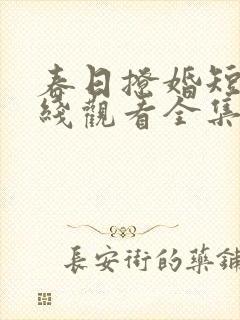 春日撩婚短
綫觀看全集
長安街的藥鋪